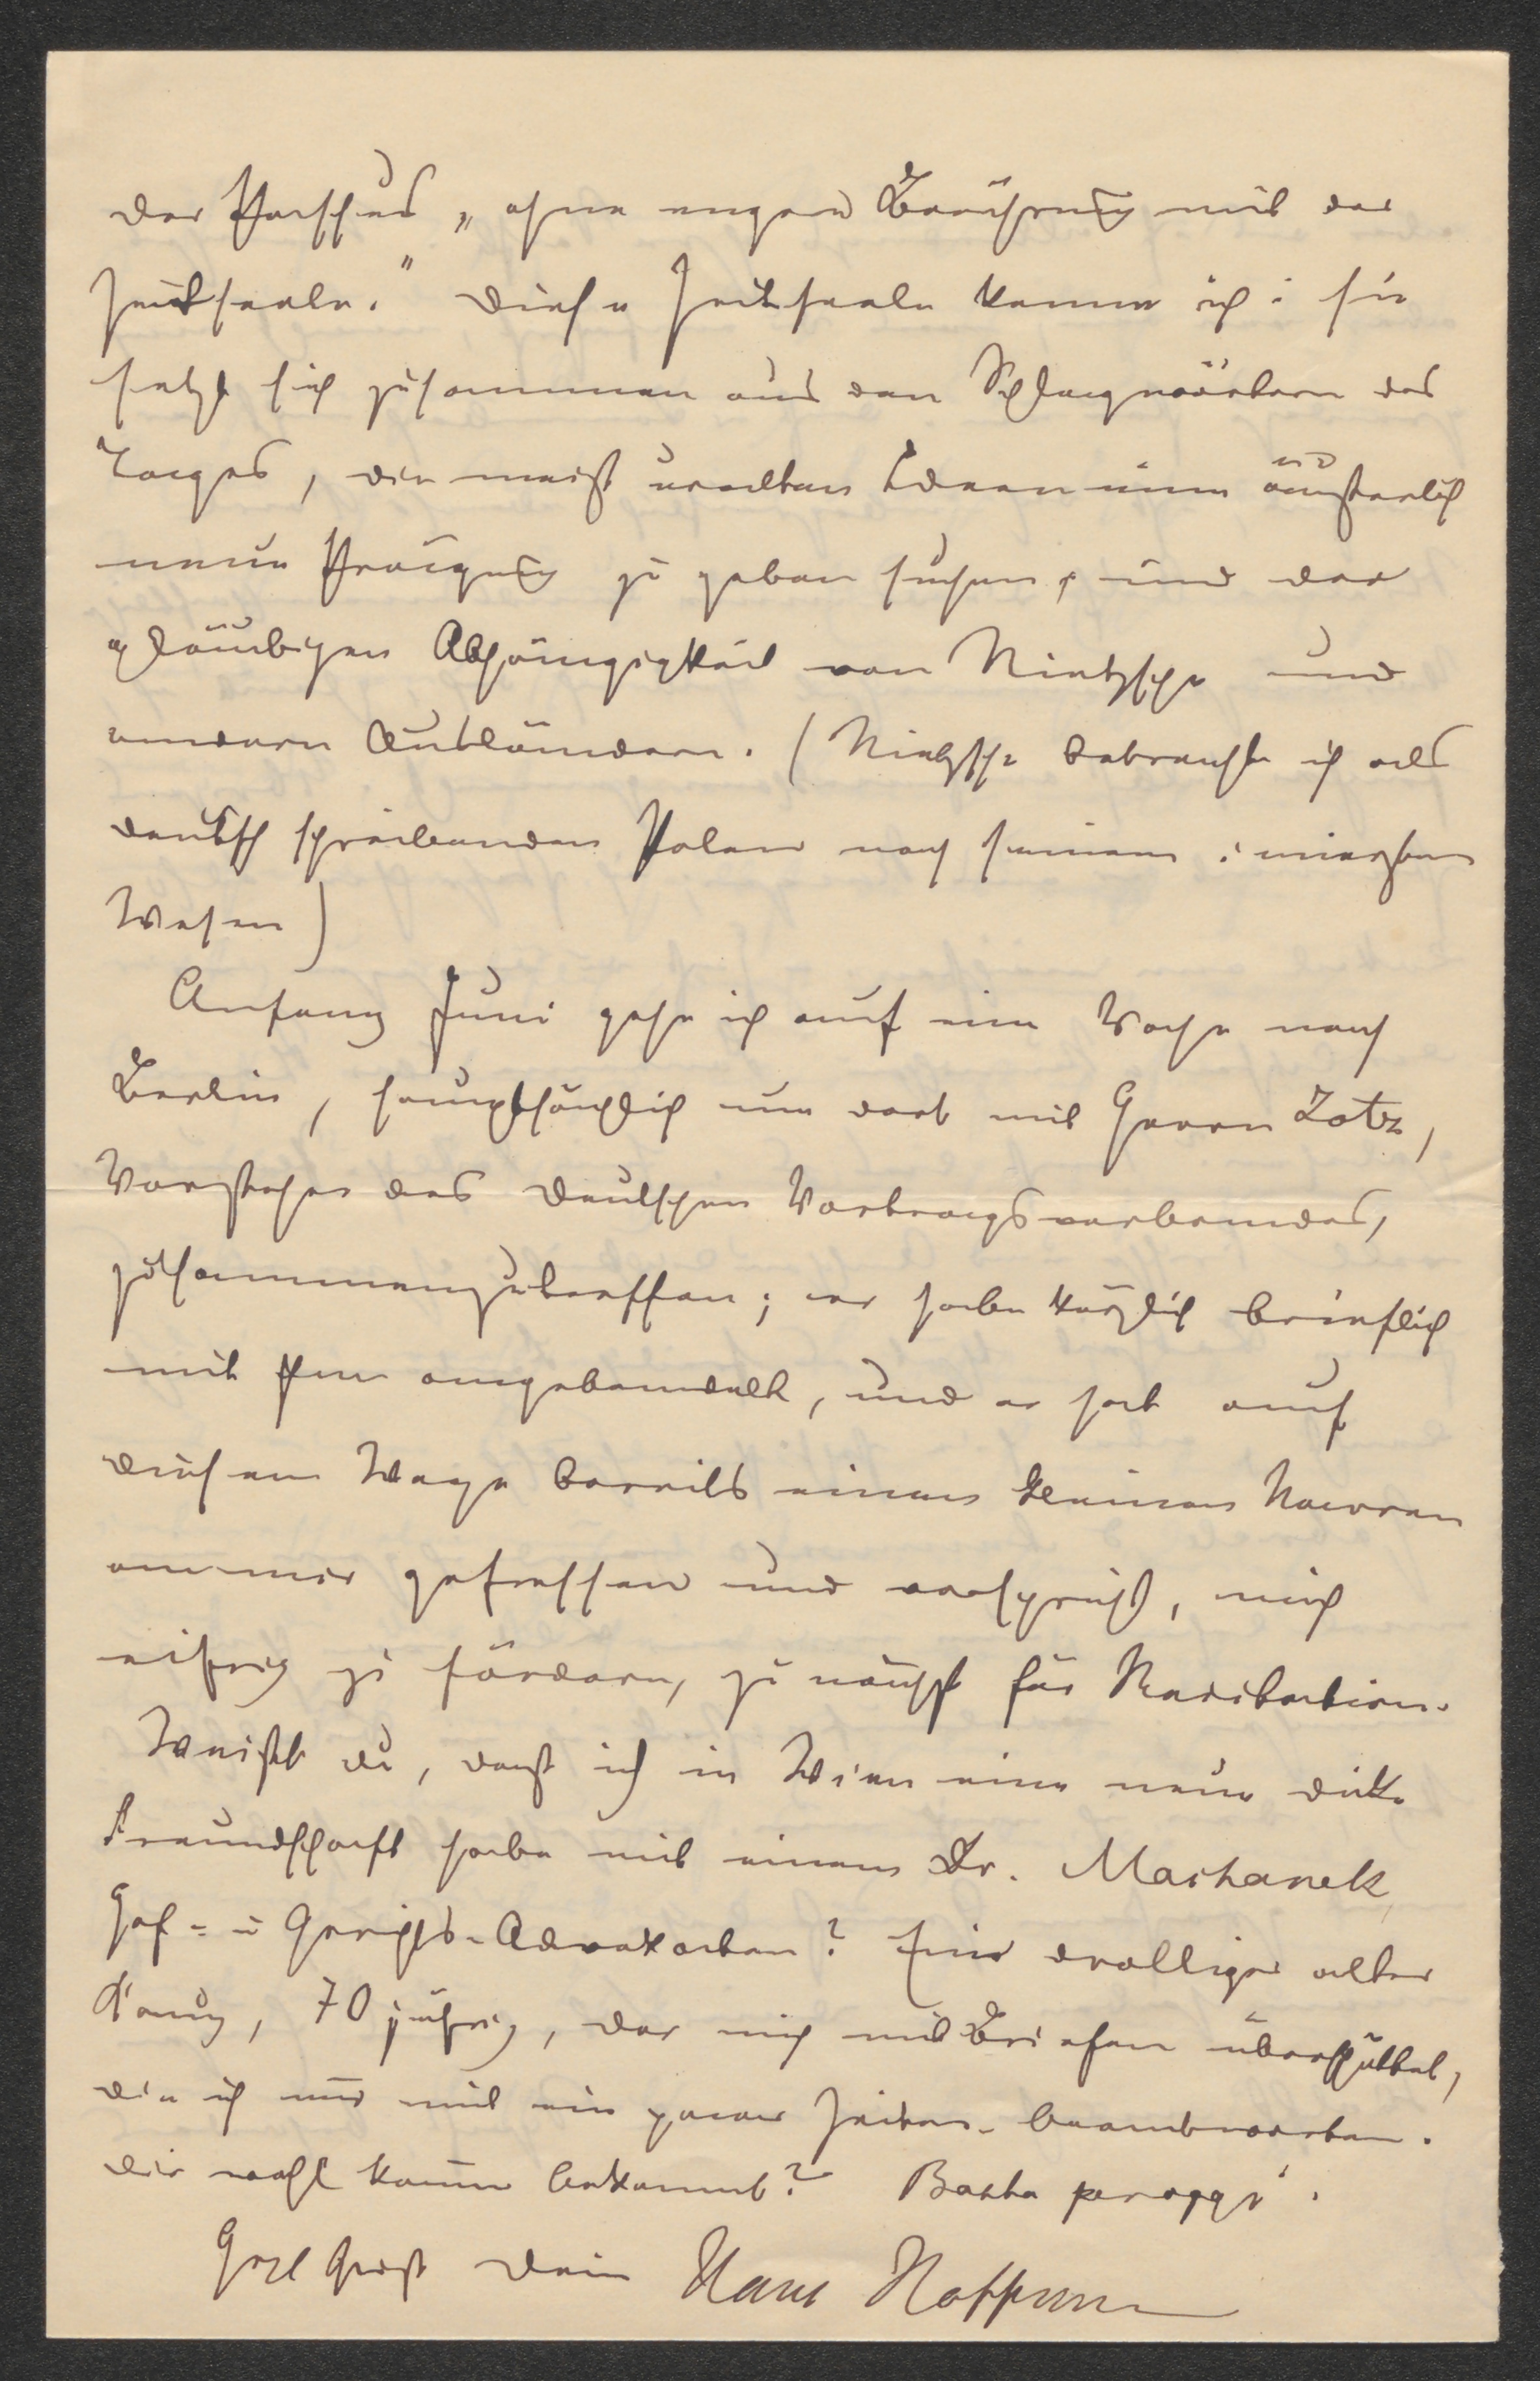 der Parsifal „ohne engere Berührung mit der
Zeitseele.“ Diese Zeitseele kenne ich: sie
setzt sich zusammen aus den Schlagwörtern des
Tages, die meist uralten Ideen eine äußerlich
neue Prägung zu geben suchen, und der
gläubigen Abhängigkeit von Nietzsche und
andern Ausländern. (Nietzsche betrachte ich als
deutsch schreibenden Polen nach seinem innersten
Wesen)
Anfang Juni gehe ich auf eine Woche nach
Berlin, hauptsächlich um dort mit Herrn Lotz,
Vorsteher des Deutschen Vortragsverbandes,
zusammenzutreffen; wir haben kürzlich brieflich
mit ihm angebandelt, und er hat auf
diesem Wege bereits einen kleinen Narren
an mir gefressen und verspricht, mich
eifrig zu fördern, zunächst für Recitation.
Weißt du, daß ich in Wien eine neue dicke
Freundschaft habe mit einem Dr. Machanek,
Hof- u Gerichts-Advokaten? Ein drolliger alter
70 jährig, der mich mit Briefen überschüttet,
die ich nur mit ein paar Zeilen beantworte.
Dir wohl kaum bekannt? Basta per oggi.
Herzl Gruß Dein Hans Hoffmann